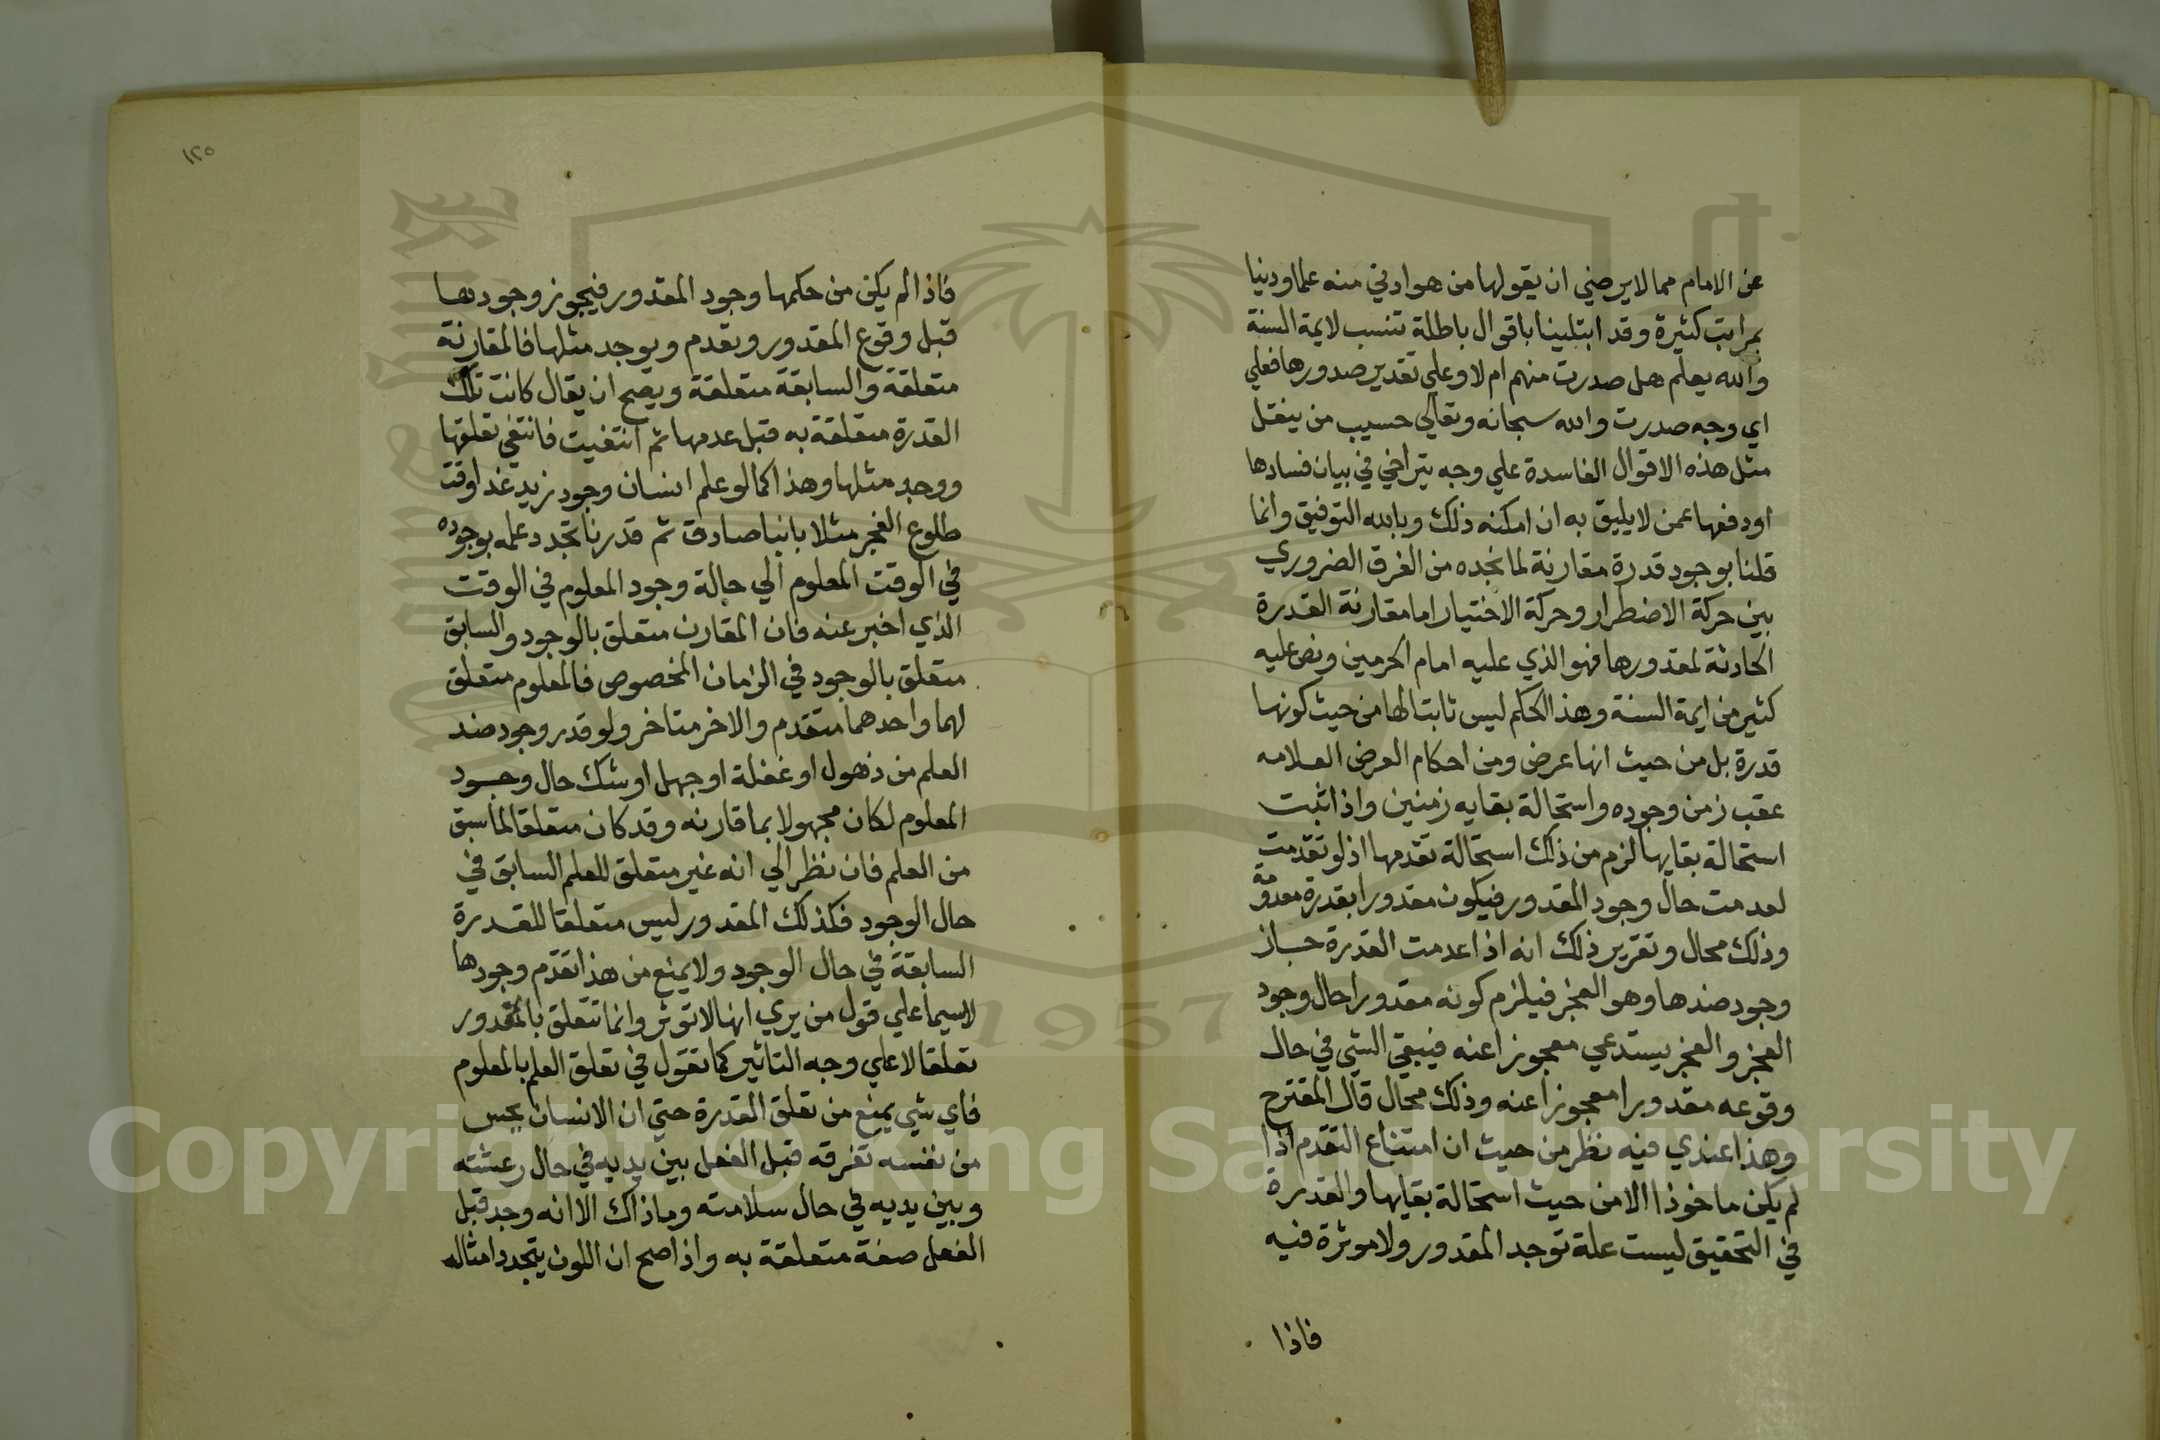 عن الامام مما لا يرضي ان يقولها من هو ادني منه علما ودنيا
بمراتب كثيرة وقد ابتلينا باقوال باطلة تنسب لايمة السنة
والله يعلم هل صدرت منهم ام لا وعلي تقدير صدورها فعلي
اي وجه صدرت والله سبحانه وتعالي حسيب من ينقل
مثل هذه الاقوال الفاسدة علي وجه يتراخي في بيان فسادها
او دفعها عمن لا يليق به ان امكنه ذلك وبالله التوفيق وانما
قلنا بوجود قدرة مقارنة لما نجده من الفرق الضروري
بين حركة الاضطرار وحركة الاختيار اما مقارنة القدرة
الحادثة لمقدورها فهو الذي عليه امام الحرمين ونص عليه
كثير من ايمة السنة وهذا الحكم ليس ثابتا لها من حيث كونها
قدرة بل من حيث انها عرض ومن احكام العرض العلامه
عقب زمن وجوده واستحالة بقايه زمنين واذا ثبت
استحالة بقايها لزم من ذلك استحالة تقدمها اذ لو تقدمت
لعدمت حال وجود المقدور فيكون مقدورا بقدرة معدومة
وذلك محال وتقرير ذلك انه اذا عدمت القدرة جاز
وجود ضدها وهو العجز فيلزم كونه مقدورا حال وجود
العجز والعجز يستدعي معجوزا عنه فيبقي الشي في حال
وقوعه مقدورا معجوزا عنه وذلك محال قال المقترح
وهذا عندي فيه نظر من حيث ان امتناع التقدم اذا
لم يكن ماخوذا الا من حيث استحالة بقايها والقدرة
في التحقيق ليست علة توجد المقدور ولا موثرة فيه
فاذا
١٢٥
فاذا لم يكن من حكمها وجود المقدور فيجوز وجودها
قبل وقوع المقدور وتقدم ويوجد مثلها فالمقارنة
متعلقة والسابقة متعلقة ويصح ان يقال كانت تلك
القدرة متعلقة به قبل عدمها ثم انتفيت فانتفي تعلقها
ووجد مثلها وهذا كما لو علم انسان وجود زيد غدا وقت
طلوع الفجر مثلا بانبا صادق ثم قدرنا تجدد علمه بوجوده
في الوقت المعلوم الي حالة وجود المعلوم في الوقت
الذي اخبر عنه فان المقارن متعلق بالوجود والسابق
متعلق بالوجود في الزمان المخصوص فالمعلوم متعلق
لهما واحدهما متقدم والاخر متاخر ولو قدر وجود ضد
العلم من ذهول او غفلة او جهل او شك حال وجود
المعلوم لكان مجهولا بما قارنه وقد كان متعلقا لما سبق
من العلم فان نظر الي انه غير متعلق للعلم السابق في
حال الوجود فكذلك المقدور ليس متعلقا للقدرة
السابقة في حال الوجود ولا يمنع من هذا تقدم وجودها
لاسيما علي قول من يري انها لا توثر وانما تتعلق بالمقدور
تعلقا لا علي وجه التاثير كما تقول في تعلق العلم بالمعلوم
فاي شي يمنع من تعلق القدرة حتي ان الانسان يحس
من نفسه تفرقه قبل الفعل بين يديه في حال رعشته
وبين يديه في حال سلامته وما ذاك الا انه وجد قبل
الفعل صفة متعلقة به واذا صح ان اللون يتجدد امثاله
1957
Copyright © King Saud University